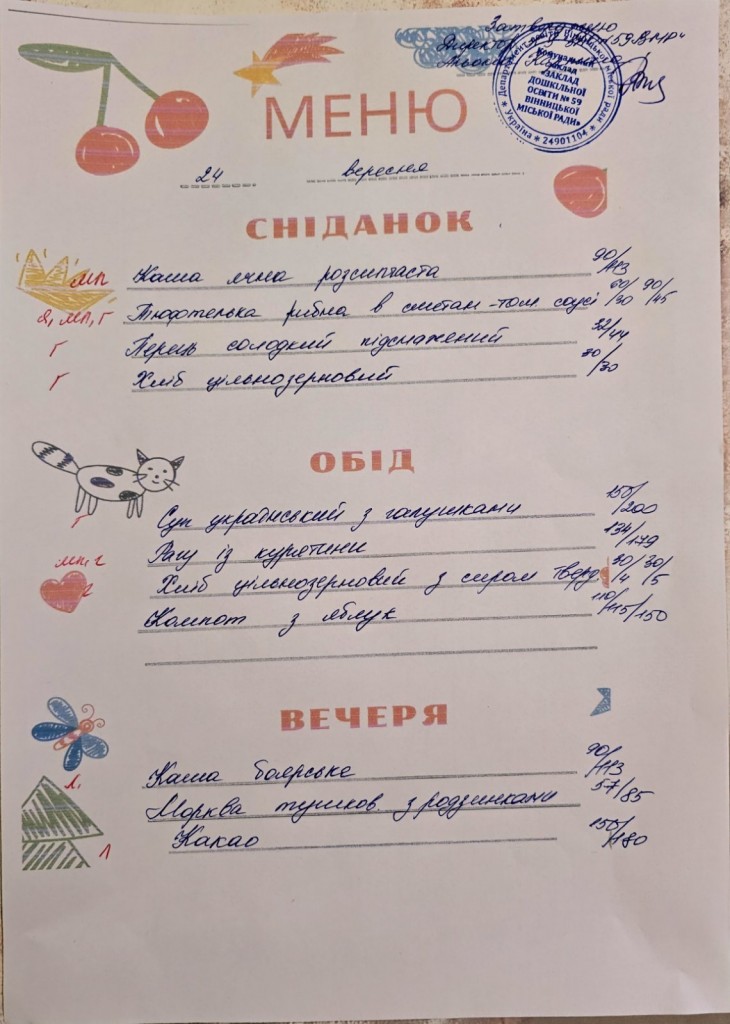 Затверджую
Директор "ЗДО №59 ВМР"
Департамент освіти Вінницької міської ради * Україна * 24901104 *
Комунальний
заклад
«ЗАКЛАД
ДОШКІЛЬНОЇ
ОСВІТИ № 59
ВІННИЦЬКОЇ
МІСЬКОЇ РАДИ»
МЕНЮ
24 вересня
СНІДАНОК
МП Каша ячна розсипчаста 90/113
Я, МП, Г Тюфтелька рибна в сметан-том соусі 60/30 90/45
Г Перець солодкий підсмажений 32/44
Г Хліб цільнозерновий 30/30
ОБІД
Г Суп український з галушками 150/200
Рагу із курятини 134/179
МП, Г Хліб цільнозерновий з сиром тверд 30/4 30/5
Компот з яблук 110/115/150
ВЕЧЕРЯ
Каша боярське 90/113
Л, Морква тушков. з родзинками 57/85
Л Какао 150/180